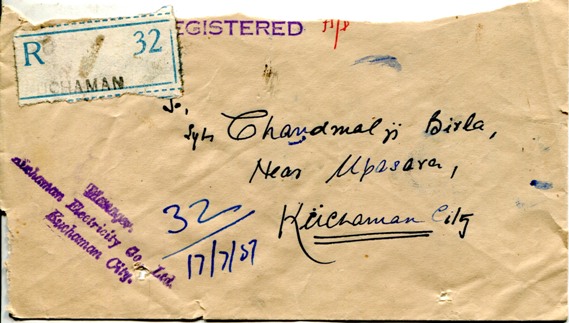 REGISTERED
R 32
CHAMAN
To,
Chandmalji Birla,
Near Upasara,
Kuchaman City
32
17/7/57
Manager.
Kuchaman Electricity Co., Ltd.
Kuchaman City.